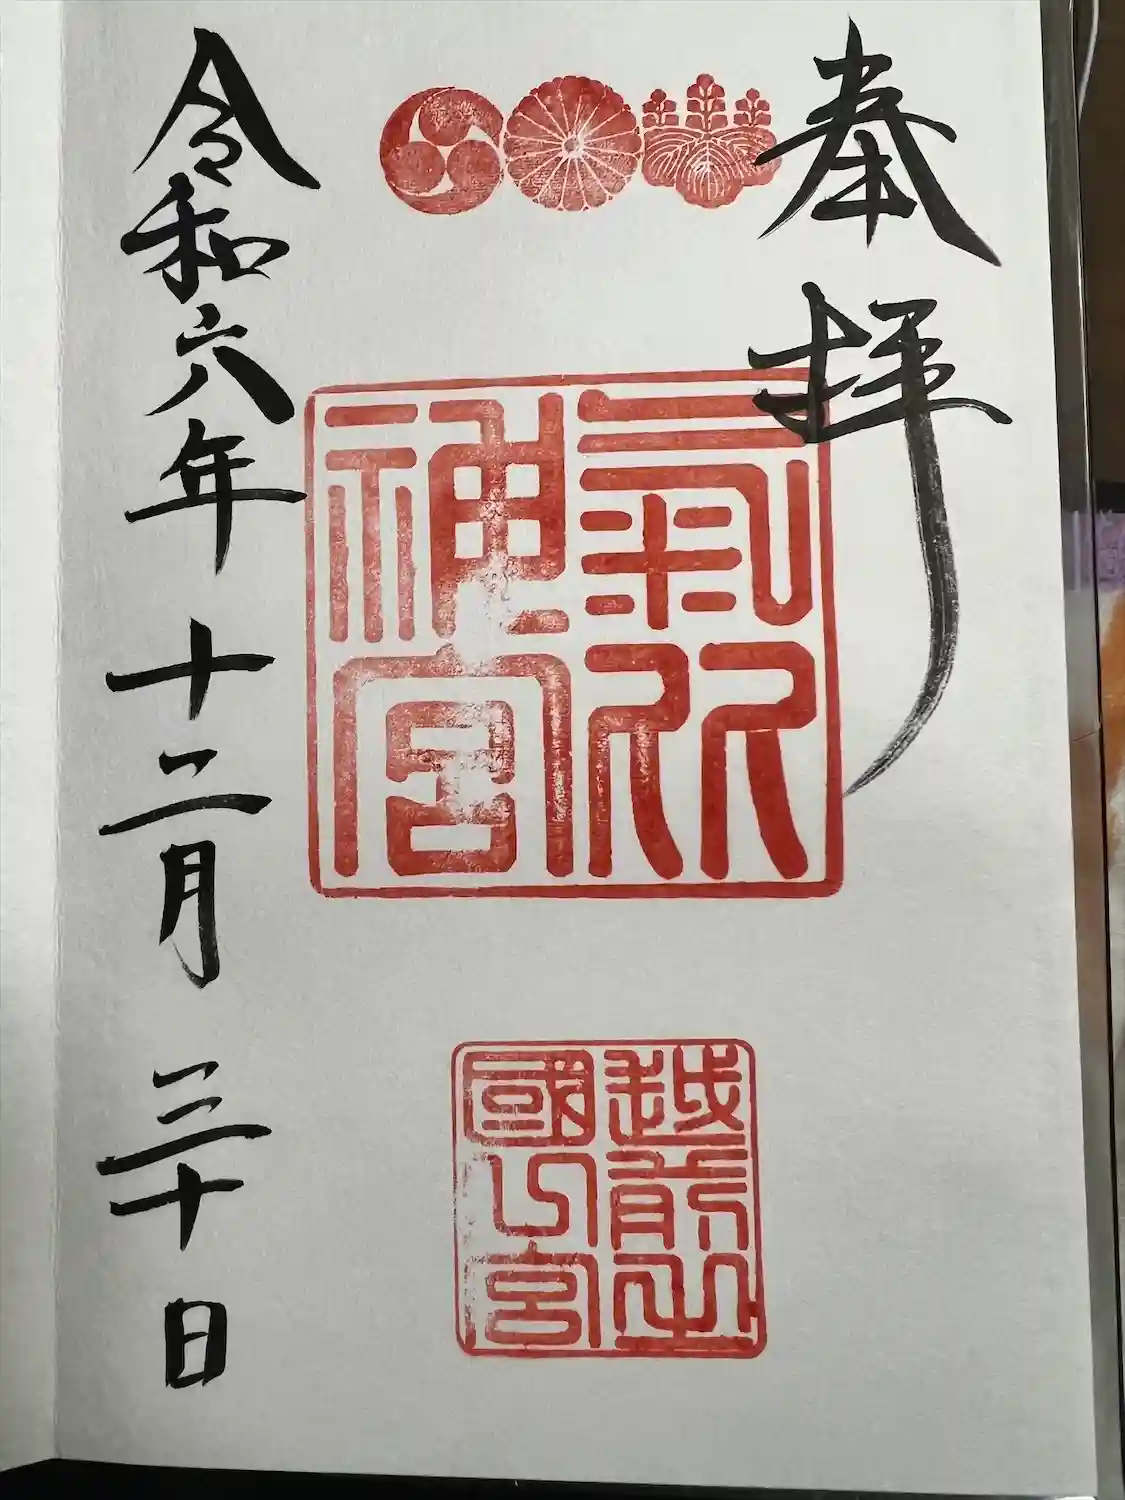 奉拝
氣比
神宮
越前之
國一宮
令和六年 十二月 三十日